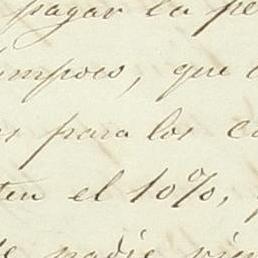 pagar la pe
impoco, que
s para los co
ten el 10%,
nadie